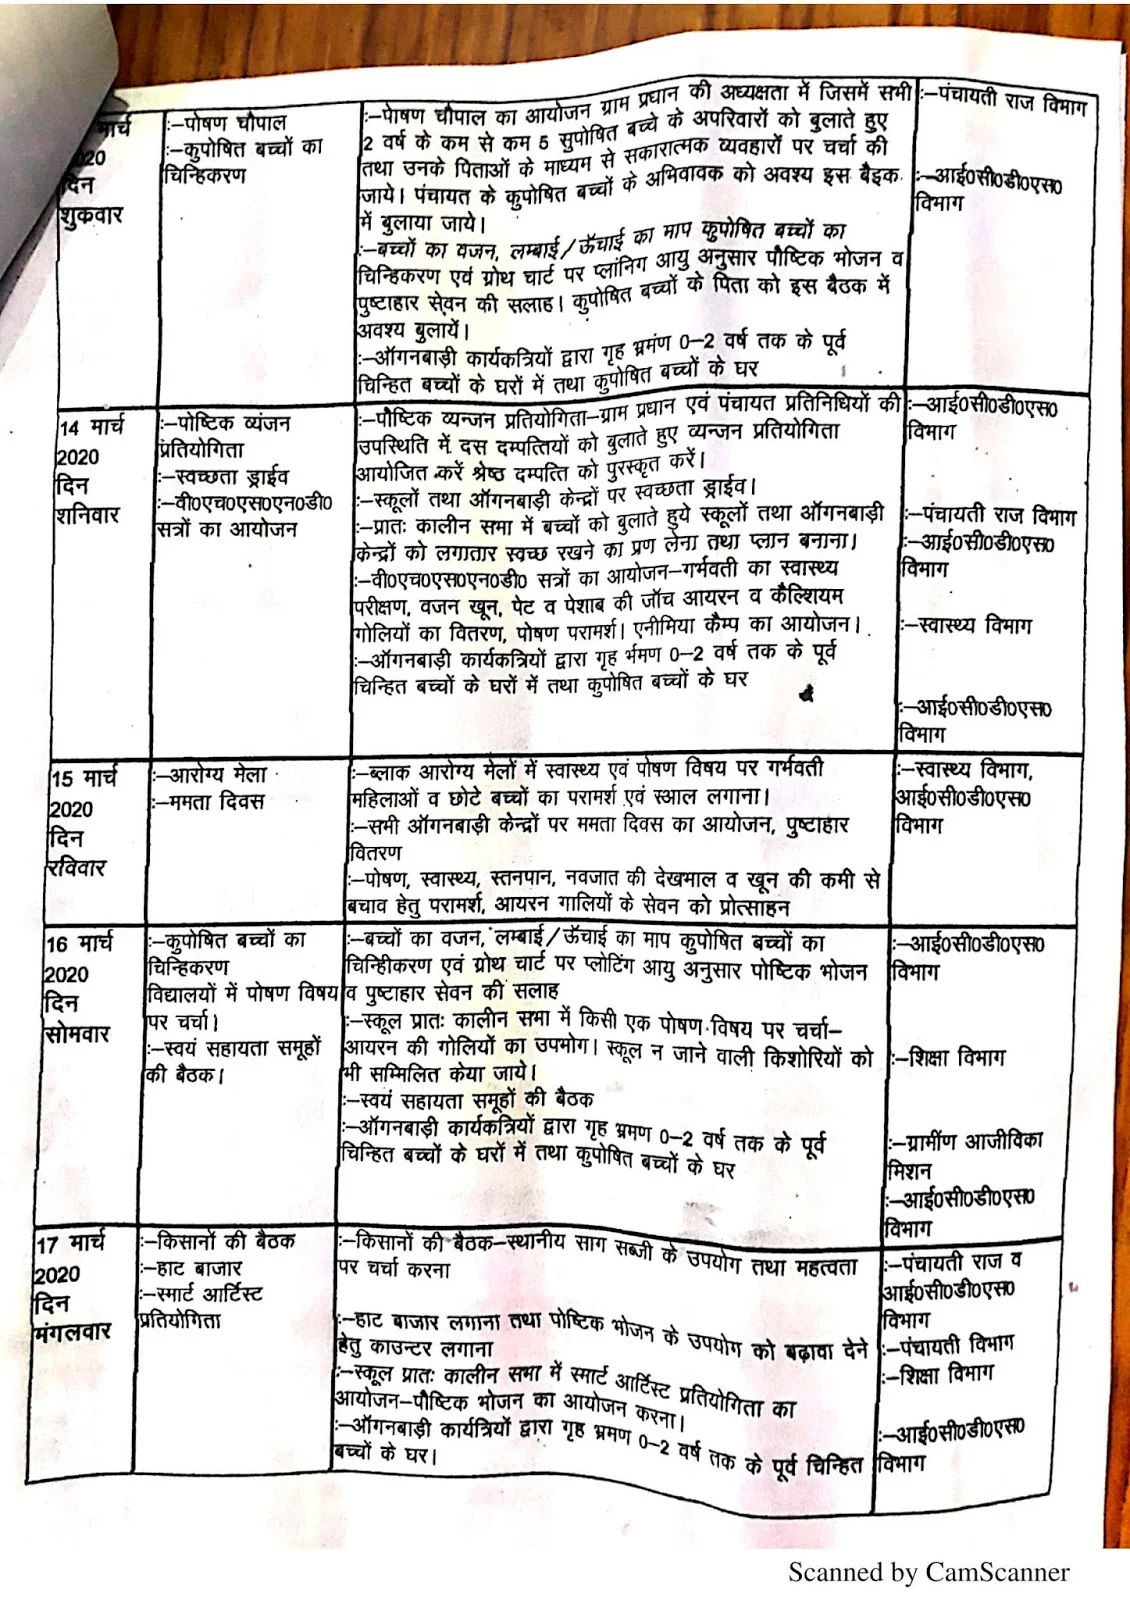 मार्च
2020
दिन
शुकवार
:–पोषण चौपाल
:–कुपोषित बच्चों का
चिन्हिकरण
:–पोषण चौपाल का आयोजन ग्राम प्रधान की अध्यक्षता में जिसमें सभी
2 वर्ष के कम से कम 5 सुपोषित बच्चे के अपरिवारों को बुलाते हुए
तथा उनके पिताओं के माध्यम से सकारात्मक व्यवहारों पर चर्चा की
जाये। पंचायत के कुपोषित बच्चों के अभिवावक को अवश्य इस बैइक
में बुलाया जाये।
:–बच्चों का वजन, लम्बाई/ऊँचाई का माप कुपोषित बच्चों का
चिन्हिकरण एवं ग्रोथ चार्ट पर प्लांनिग आयु अनुसार पौष्टिक भोजन व
पुष्टाहार सेवन की सलाह। कुपोषित बच्चों के पिता को इस बैठक में
अवश्य बुलायें।
:–ऑगनबाड़ी कार्यकत्रियों द्वारा गृह भ्रमंण 0–2 वर्ष तक के पूर्व
चिन्हित बच्चों के घरों में तथा कुपोषित बच्चों के घर
:–पंचायती राज विभाग
:–आई0सी0डी0एस0
विभाग
14 मार्च
2020
दिन
शनिवार
:–पोष्टिक व्यंजन
प्रतियोगिता
:–स्वच्छता ड्राईव
:–वी0एच0एस0एन0डी0
सत्रों का आयोजन
:–पौष्टिक व्यन्जन प्रतियोगिता–ग्राम प्रधान एवं पंचायत प्रतिनिधियों की
उपस्थिति में दस दम्पत्तियों को बुलाते हुए व्यन्जन प्रतियोगिता
आयोजित करें श्रेष्ठ दम्पत्ति को पुरस्कृत करें।
:–स्कूलों तथा ऑगनबाड़ी केन्द्रों पर स्वच्छता ड्राईव।
:–प्रातः कालीन सभा में बच्चों को बुलाते हुये स्कूलों तथा ऑगनबाड़ी
केन्द्रों को लगातार स्वच्छ रखने का प्रण लेना तथा प्लान बनाना।
:–वी0एच0एस0एन0डी0 सत्रों का आयोजन–गर्भवती का स्वास्थ्य
परीक्षण, वजन खून, पेट व पेशाब की जॉच आयरन व कैल्शियम
गोलियों का वितरण, पोषण परामर्श। एनीमिया कैम्प का आयोजन।
:–ऑगनबाड़ी कार्यकत्रियों द्वारा गृह र्भमण 0–2 वर्ष तक के पूर्व
चिन्हित बच्चों के घरों में तथा कुपोषित बच्चों के घर
:–आई0सी0डी0एस0
विभाग
:–पंचायती राज विभाग
:–आई0सी0डी0एस0
विभाग
:–स्वास्थ्य विभाग
:–आई0सी0डी0एस0
विभाग
15 मार्च
2020
दिन
रविवार
:–आरोग्य मेला
:–ममता दिवस
:–ब्लाक आरोग्य मेलों में स्वास्थ्य एवं पोषण विषय पर गर्भवती
महिलाओं व छोटे बच्चों का परामर्श एवं स्आल लगाना।
:–सभी ऑगनबाड़ी केन्द्रों पर ममता दिवस का आयोजन, पुष्टाहार
वितरण
:–पोषण, स्वास्थ्य, स्तनपान, नवजात की देखमाल व खून की कमी से
बचाव हेतु परामर्श, आयरन गालियों के सेवन को प्रोत्साहन
:–स्वास्थ्य विभाग,
आई0सी0डी0एस0
विभाग
16 मार्च
2020
दिन
सोमवार
:–कुपोषित बच्चों का
चिन्हिकरण
विद्यालयों में पोषण विषय
पर चर्चा।
:–स्वयं सहायता समूहों
की बैठक।
:–बच्चों का वजन, लम्बाई/ऊँचाई का माप कुपोषित बच्चों का
चिन्हिीकरण एवं ग्रोथ चार्ट पर प्लोटिंग आयु अनुसार पोष्टिक भोजन
व पुष्टाहार सेवन की सलाह
:–स्कूल प्रातः कालीन सभा में किसी एक पोषण विषय पर चर्चा–
आयरन की गोलियों का उपभोग। स्कूल न जाने वाली किशोरियों को
भी सम्मिलित केया जाये।
:–स्वयं सहायता समूहों की बैठक
:–ऑगनबाड़ी कार्यकत्रियों द्वारा गृह भ्रमण 0–2 वर्ष तक के पूर्व
चिन्हित बच्चों के घरों में तथा कुपोषित बच्चों के घर
:–आई0सी0डी0एस0
विभाग
:–शिक्षा विभाग
:–ग्रामींण आजीविका
मिशन
:–आई0सी0डी0एस0
विभाग
17 मार्च
2020
दिन
मंगलवार
:–किसानों की बैठक
:–हाट बाजार
:–स्मार्ट आर्टिस्ट
प्रतियोगिता
:–किसानों की बैठक–स्थानीय साग सब्जी के उपयोग तथा महत्वता
पर चर्चा करना
:–हाट बाजार लगाना तथा पोष्टिक भोजन के उपयोग को बढ़ावा देने
हेतु काउन्टर लगाना
:–स्कूल प्रातः कालीन सभा में स्मार्ट आर्टिस्ट प्रतियोगिता का
आयोजन–पौष्टिक भोजन का आयोजन करना।
:–ऑगनबाड़ी कार्यत्रियों द्वारा गृह भ्रमण 0–2 वर्ष तक के पूर्व चिन्हित
बच्चों के घर।
:–पंचायती राज व
आई0सी0डी0एस0
विभाग
:–पंचायती विभाग
:–शिक्षा विभाग
:–आई0सी0डी0एस0
विभाग
Scanned by CamScanner